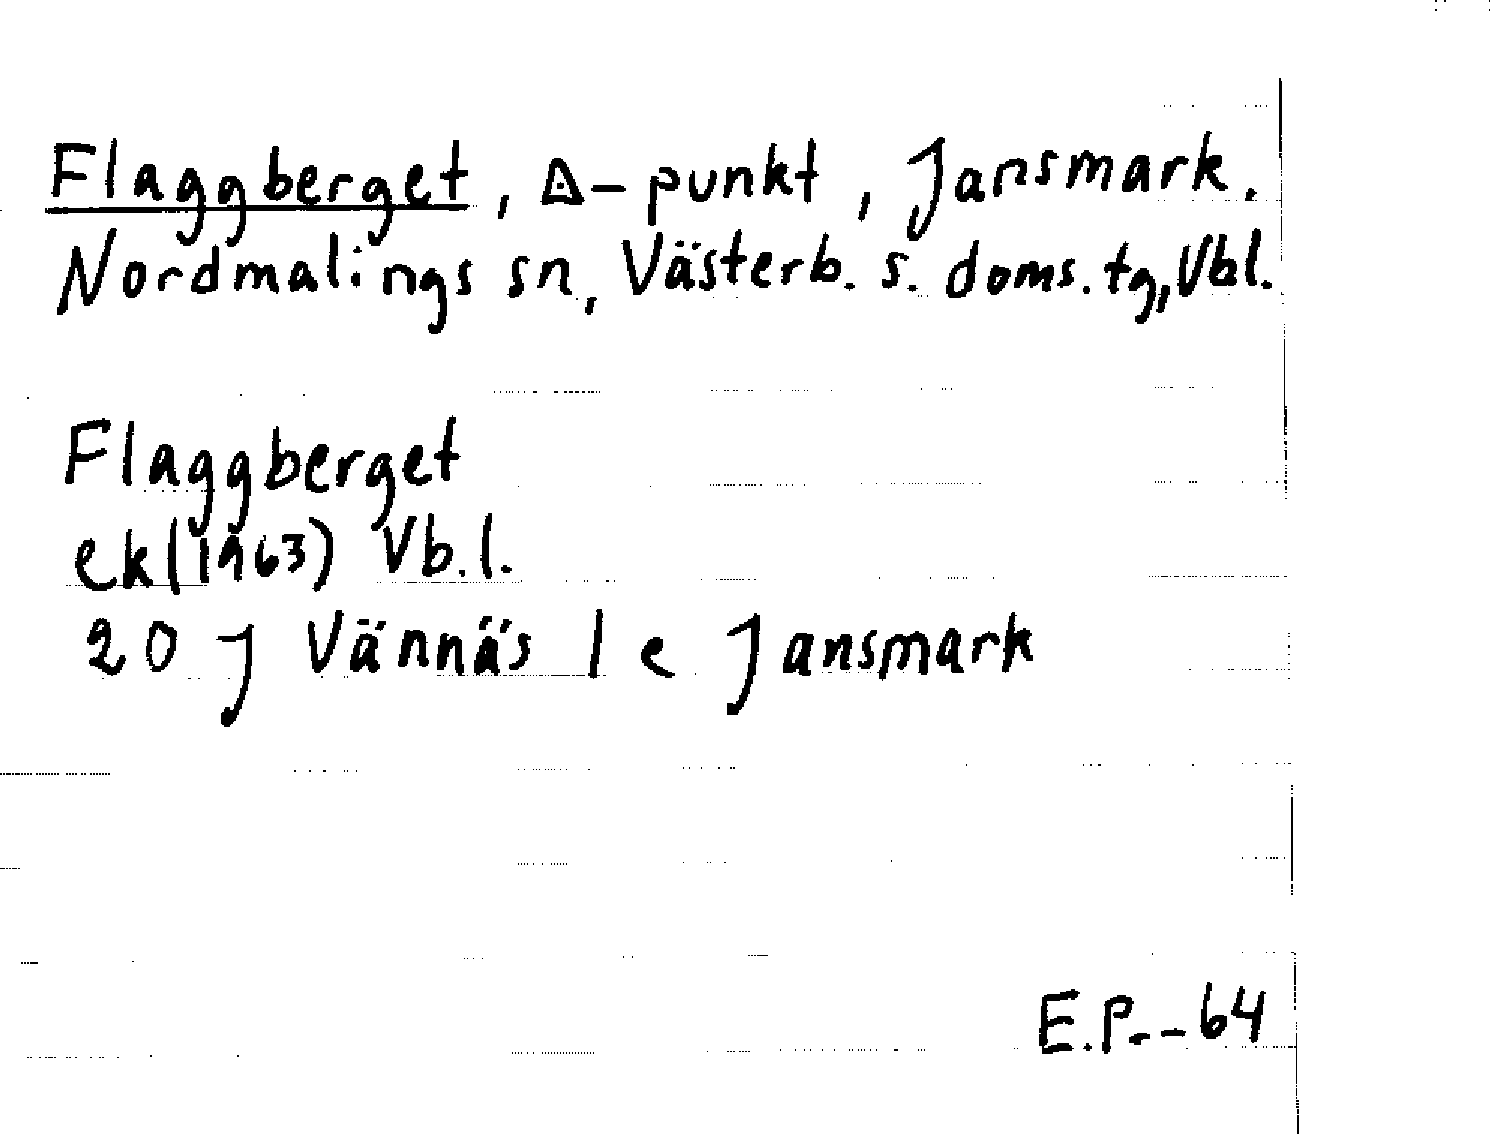 Flaggberget, ∆-punkt, Jansmark.
Nordmalings sn, Västerb. s. doms. tg, Vbl.
Flaggberget
ek(1963) Vb.l.
20 J Vännäs 1 e Jansmark
E.P. -64